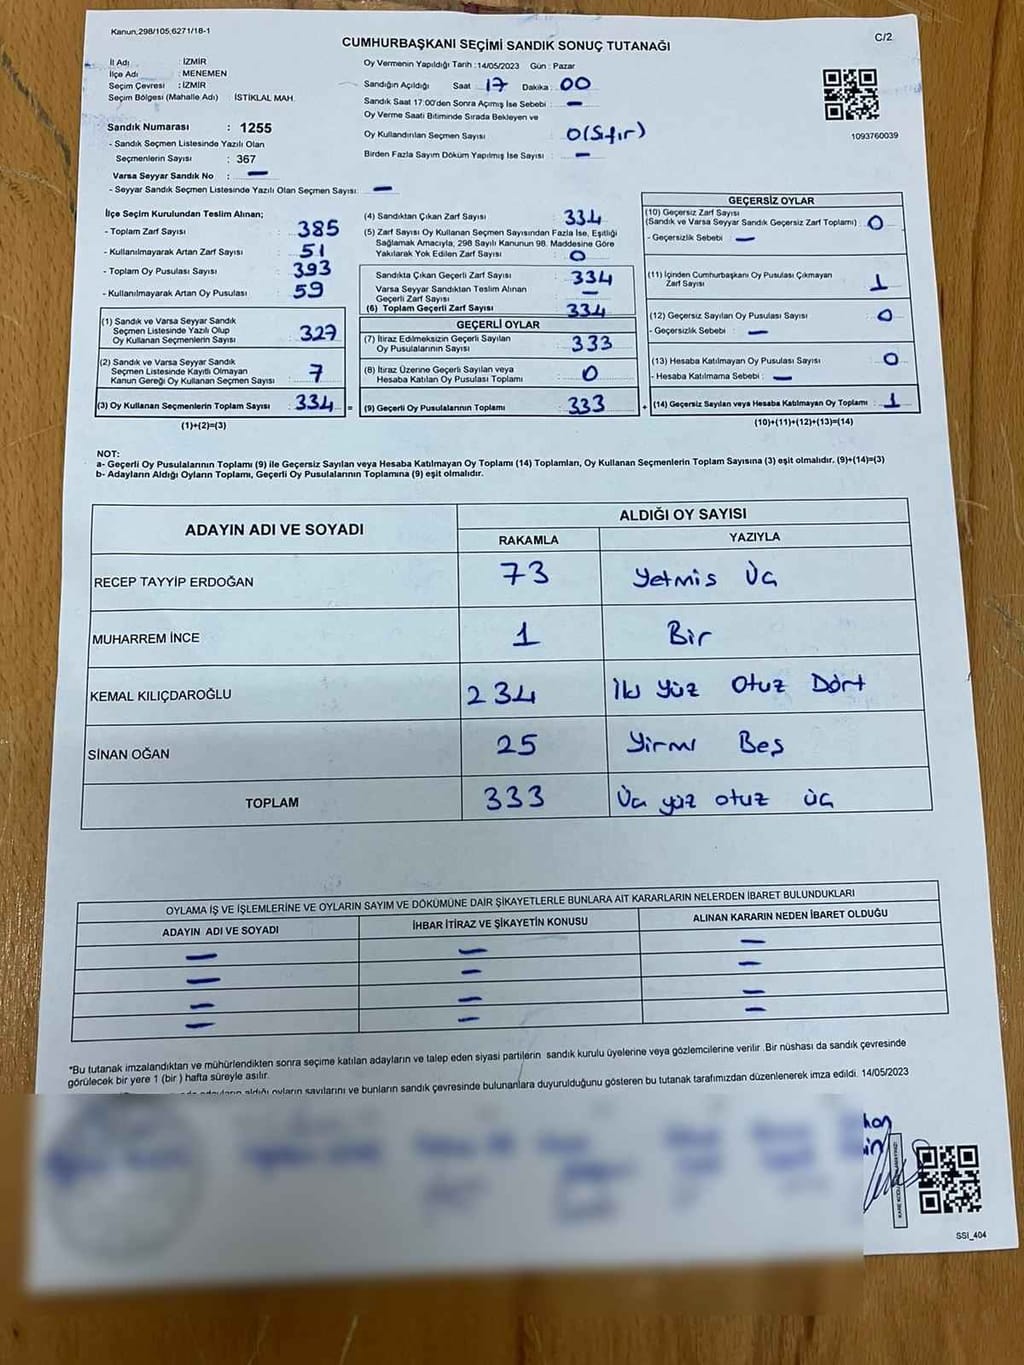 Kanun,298/105,6271/18-1
C/2
CUMHURBAŞKANI SEÇİMİ SANDIK SONUÇ TUTANAĞI
İl Adı : İZMİR
İlçe Adı : MENEMEN
Seçim Çevresi : İZMİR
Seçim Bölgesi (Mahalle Adı) İSTİKLAL MAH.
Sandık Numarası : 1255
- Sandık Seçmen Listesinde Yazılı Olan
Seçmenlerin Sayısı : 367
Varsa Seyyar Sandık No : —
- Seyyar Sandık Seçmen Listesinde Yazılı Olan Seçmen Sayısı: —
Oy Vermenin Yapıldığı Tarih :14/05/2023 Gün : Pazar
Sandığın Açıldığı Saat 17 Dakika : 00
Sandık Saat 17:00'den Sonra Açımış İse Sebebi : —
Oy Verme Saati Bitiminde Sırada Bekleyen ve
Oy Kullandırılan Seçmen Sayısı : 0(Sıfır)
Birden Fazla Sayım Döküm Yapılmış İse Sayısı : —
1093760039
İlçe Seçim Kurulundan Teslim Alınan;
- Toplam Zarf Sayısı : 385
- Kullanılmayarak Artan Zarf Sayısı : 51
- Toplam Oy Pusulası Sayısı : 393
- Kullanılmayarak Artan Oy Pusulası : 59
(1) Sandık ve Varsa Seyyar Sandık
Seçmen Listesinde Yazılı Olup
Oy Kullanan Seçmenlerin Sayısı : 327
(2) Sandık ve Varsa Seyyar Sandık
Seçmen Listesinde Kayıtlı Olmayan
Kanun Gereği Oy Kullanan Seçmen Sayısı : 7
(3) Oy Kullanan Seçmenlerin Toplam Sayısı : 334 =
(1)+(2)=(3)
(4) Sandıktan Çıkan Zarf Sayısı : 334
(5) Zarf Sayısı Oy Kullanan Seçmen Sayısından Fazla İse, Eşitliği
Sağlamak Amacıyla, 298 Sayılı Kanunun 98. Maddesine Göre
Yakılarak Yok Edilen Zarf Sayısı : 0
Sandıkta Çıkan Geçerli Zarf Sayısı : 334
Varsa Seyyar Sandıktan Teslim Alınan
Geçerli Zarf Sayısı : —
(6) Toplam Geçerli Zarf Sayısı : 334
GEÇERLİ OYLAR
(7) İtiraz Edilmeksizin Geçerli Sayılan
Oy Pusulalarının Sayısı : 333
(8) İtiraz Üzerine Geçerli Sayılan veya
Hesaba Katılan Oy Pusulası Toplamı : 0
(9) Geçerli Oy Pusulalarının Toplamı : 333 +
GEÇERSİZ OYLAR
(10) Geçersiz Zarf Sayısı
(Sandık ve Varsa Seyyar Sandık Geçersiz Zarf Toplamı) : 0
- Geçersizlik Sebebi : —
(11) İçinden Cumhurbaşkanı Oy Pusulası Çıkmayan
Zarf Sayısı : 1
(12) Geçersiz Sayılan Oy Pusulası Sayısı : 0
- Geçersizlik Sebebi : —
(13) Hesaba Katılmayan Oy Pusulası Sayısı : 0
- Hesaba Katılmama Sebebi : —
(14) Geçersiz Sayılan veya Hesaba Katılmayan Oy Toplamı : 1
(10)+(11)+(12)+(13)=(14)
NOT:
a- Geçerli Oy Pusulalarının Toplamı (9) ile Geçersiz Sayılan veya Hesaba Katılmayan Oy Toplamı (14) Toplamları, Oy Kullanan Seçmenlerin Toplam Sayısına (3) eşit olmalıdır. (9)+(14)=(3)
b- Adayların Aldığı Oyların Toplamı, Geçerli Oy Pusulalarının Toplamına (9) eşit olmalıdır.
ADAYIN ADI VE SOYADI
ALDIĞI OY SAYISI
RAKAMLA YAZIYLA
RECEP TAYYİP ERDOĞAN 73 Yetmis Üç
MUHARREM İNCE 1 Bir
KEMAL KILIÇDAROĞLU 234 İki yüz Otuz Dört
SİNAN OĞAN 25 Yirmi Beş
TOPLAM 333 Üç yüz otuz üç
OYLAMA İŞ VE İŞLEMLERİNE VE OYLARIN SAYIM VE DÖKÜMÜNE DAİR ŞİKAYETLERLE BUNLARA AİT KARARLARIN NELERDEN İBARET BULUNDUKLARI
ADAYIN ADI VE SOYADI İHBAR İTİRAZ VE ŞİKAYETİN KONUSU ALINAN KARARIN NEDEN İBARET OLDUĞU
— — —
— — —
— — —
— — —
*Bu tutanak imzalandıktan ve mühürlendikten sonra seçime katılan adayların ve talep eden siyasi partilerin sandık kurulu üyelerine veya gözlemcilerine verilir .Bir nüshası da sandık çevresinde
görülecek bir yere 1 (bir ) hafta süreyle asılır.
aldığı oyların sayılarını ve bunların sandık çevresinde bulunanlara duyurulduğunu gösteren bu tutanak tarafımızdan düzenlenerek imza edildi. 14/05/2023
SSI_404